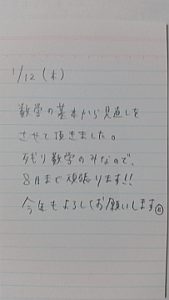 1/12(木)
数学の基本から見直しを
させて頂きました。
残り数学のみなので、
8月まで頑張ります!!
今年もよろしくお願いします